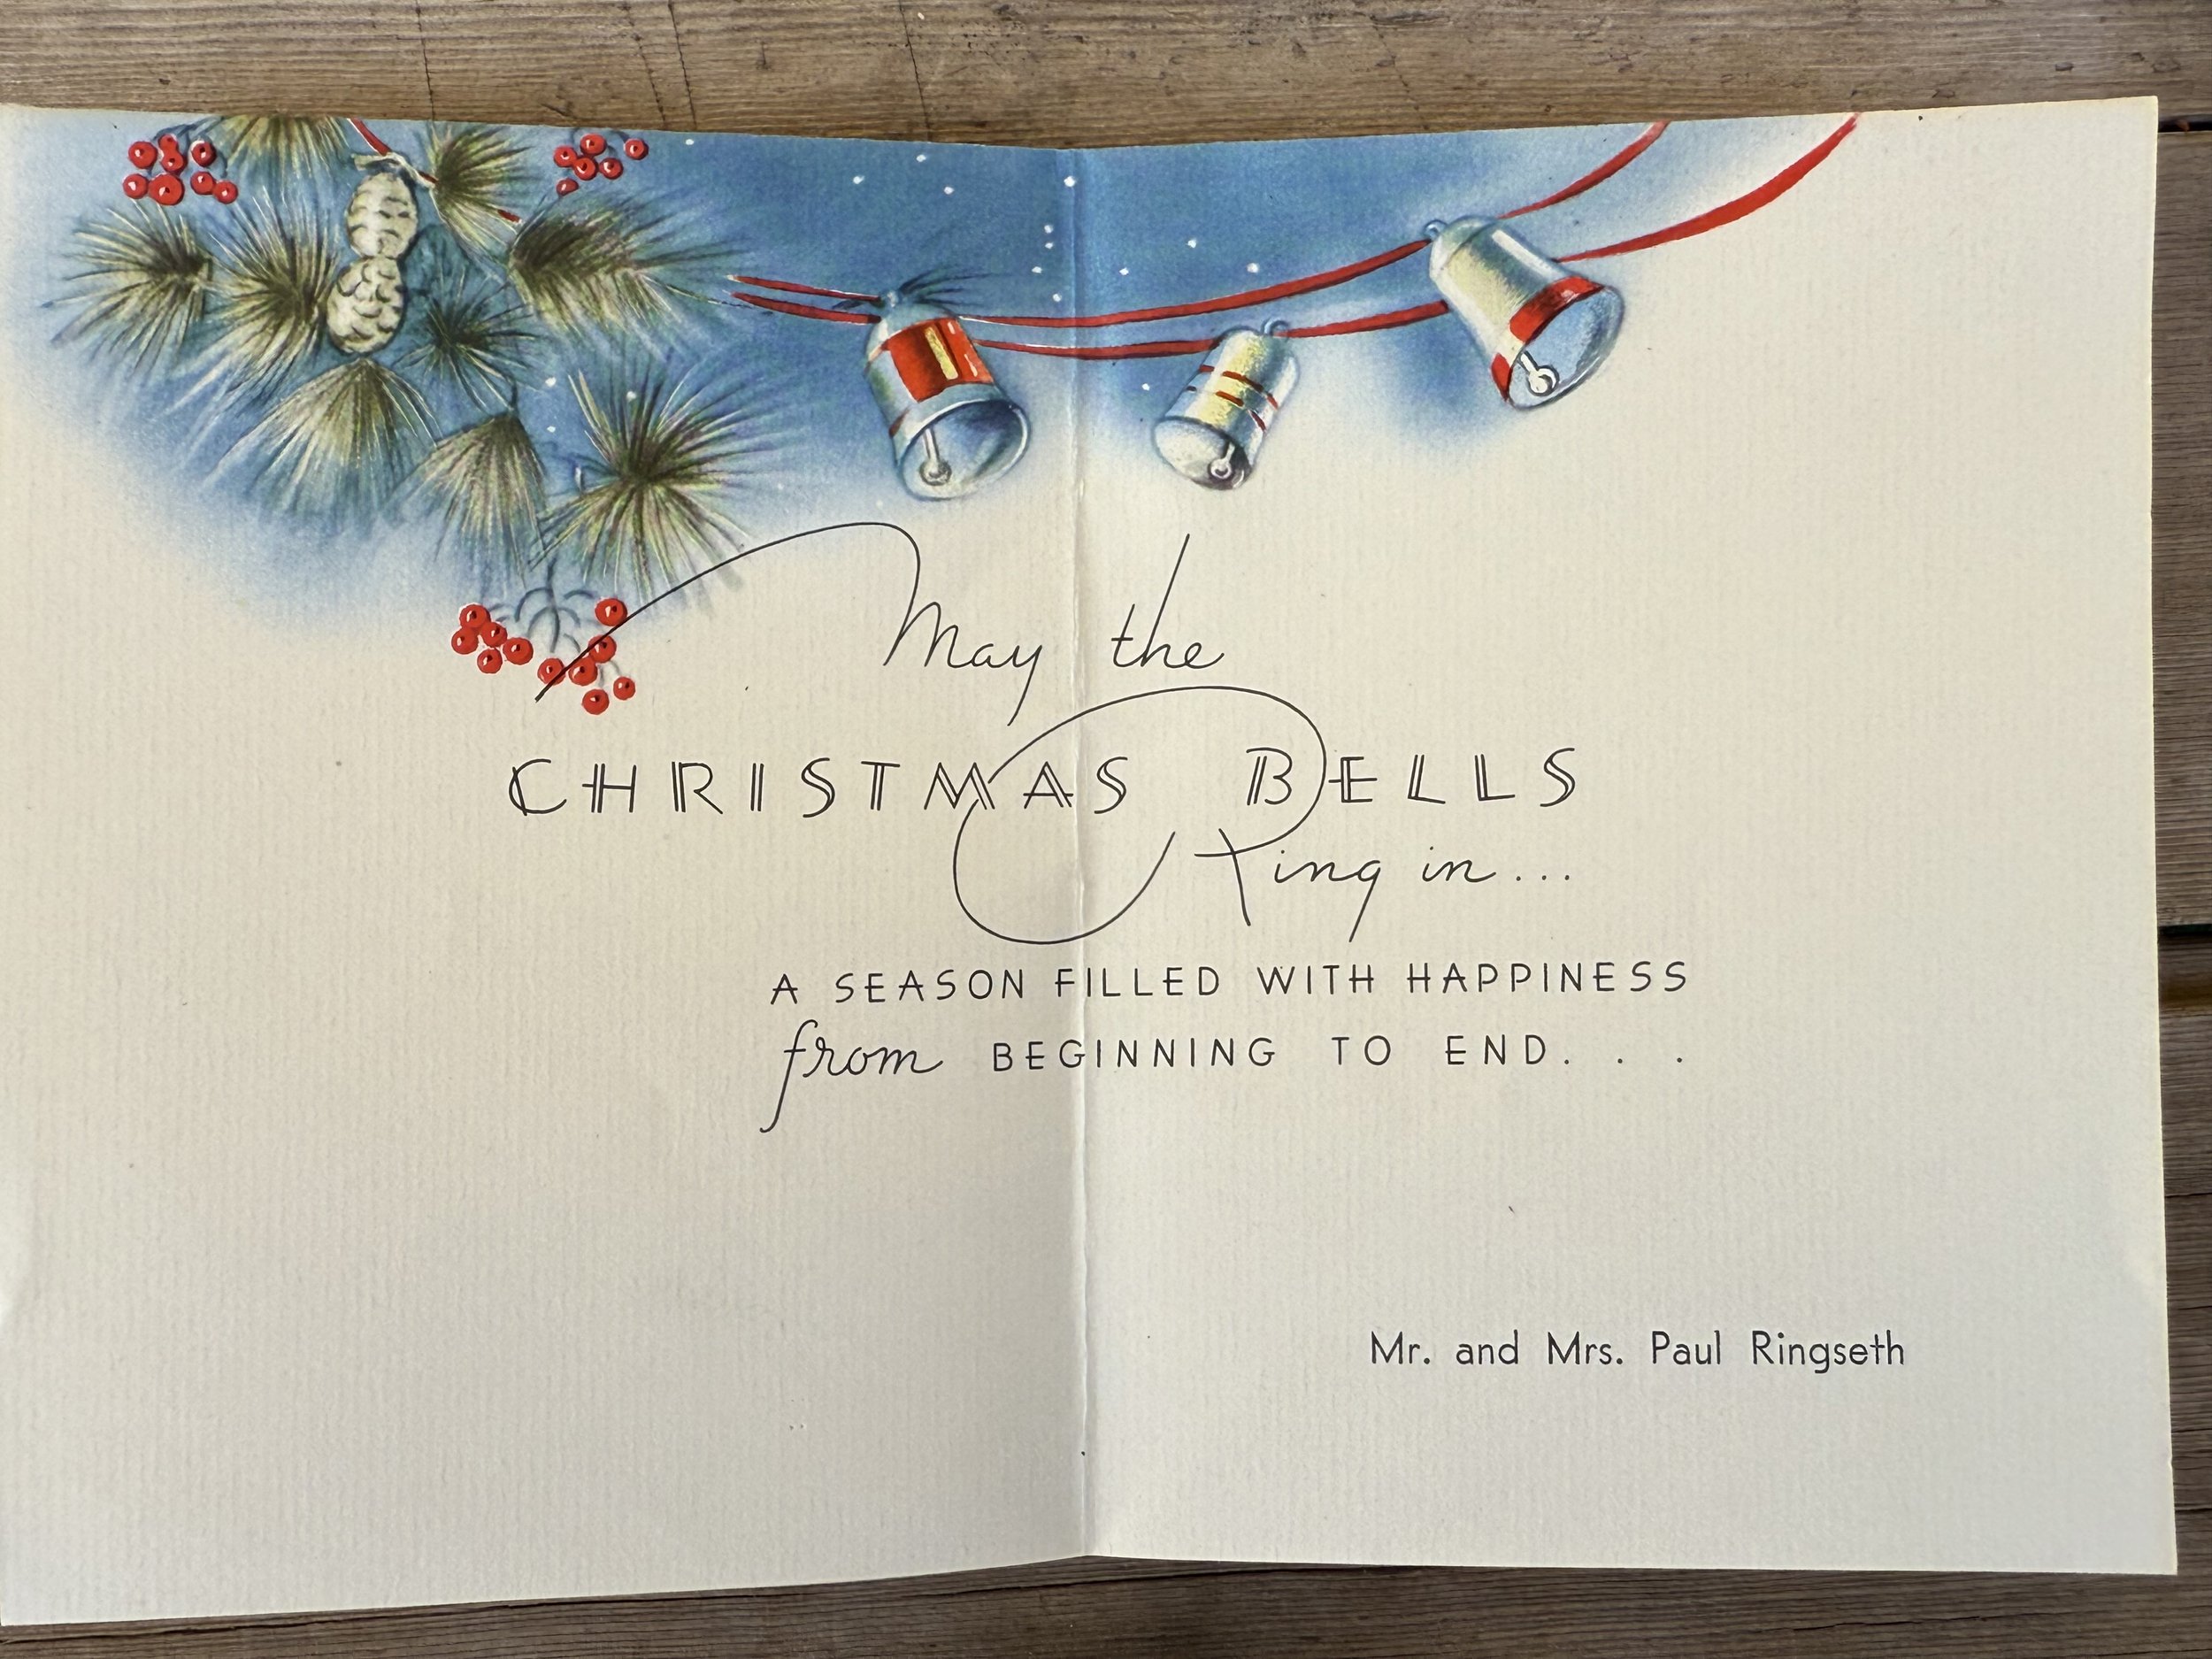 May the
CHRISTMAS BELLS
Ring in...
A SEASON FILLED WITH HAPPINESS
from BEGINNING TO END. . .
Mr. and Mrs. Paul Ringseth